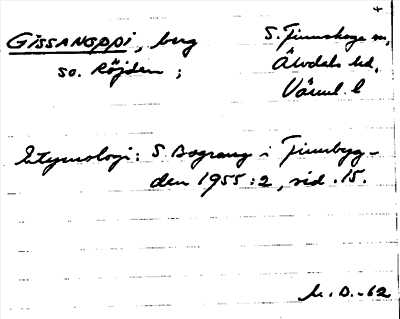 GISSANSPPI, berg
so. Röjden;
S. Finnskoga sn,
Älvdals hd,
Värml. l
Etymologi: S Aograng i Finnbyg-
den 1955:2, sid. 15.
M. D. -62